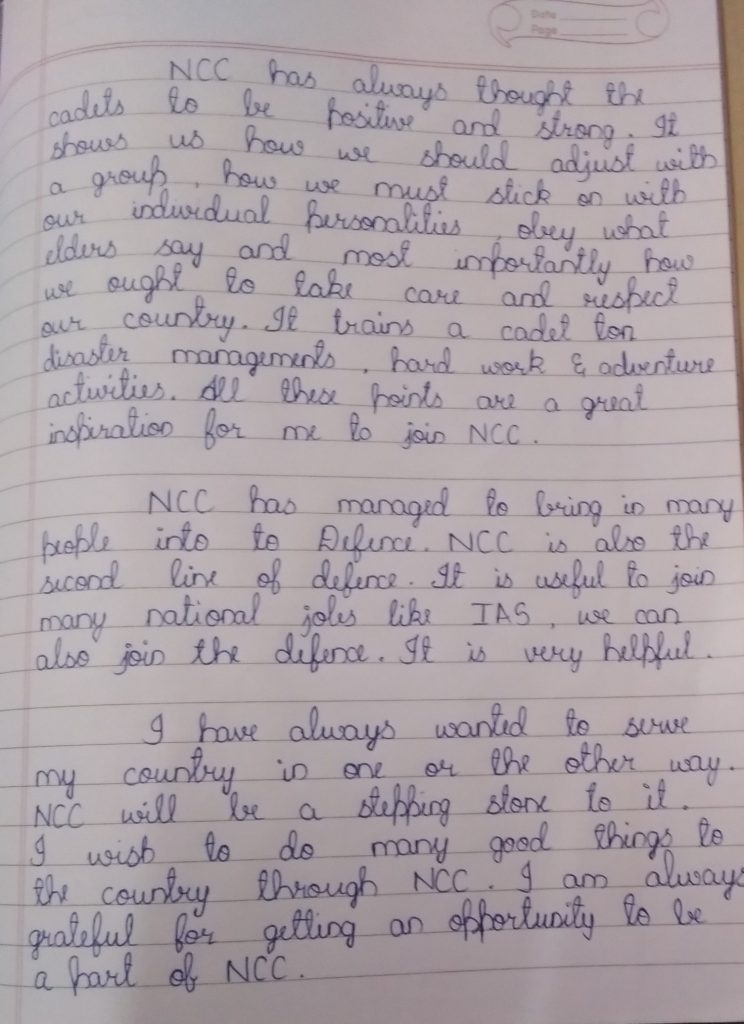 Date
Page
NCC has always thought the
cadets to be positive and strong. It
shows us how we should adjust with
a group, how we must stick on with
our individual personalities, obey what
elders say and most importantly how
we ought to take care and respect
our country. It trains a cadet ton
disaster managements, hard work & adventure
activities. All these points are a great
inspiration for me to join NCC.
NCC has managed to bring in many
people into to Defence. NCC is also the
second line of defence. It is useful to join
many national jobs like IAS, we can
also join the defence. It is very helpful.
I have always wanted to serve
my country in one or the other way.
NCC will be a stepping stone to it.
I wish to do many good things to
the country through NCC. I am always
grateful for getting an opportunity to be
a part of NCC.